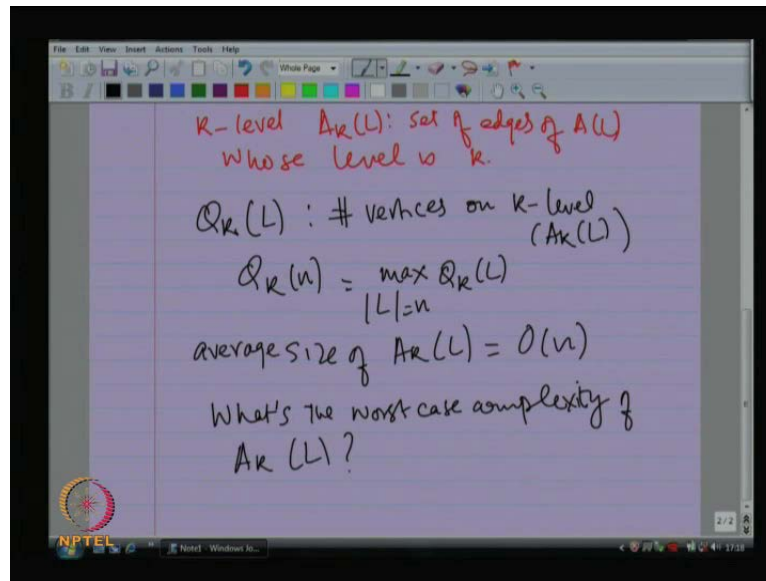 File Edit View Insert Actions Tools Help
Whole Page
B I
K-level AK(L): set of edges of A(L)
whose level is k.
QK(L) : # vertices on K-level
(AK(L))
QK(n) = max QK(L)
|L|=n
average size of AK(L) = O(n)
What's the worst case complexity of
AK (L)?
2/2
NPTEL
Note1 - Windows Jo...
17:18